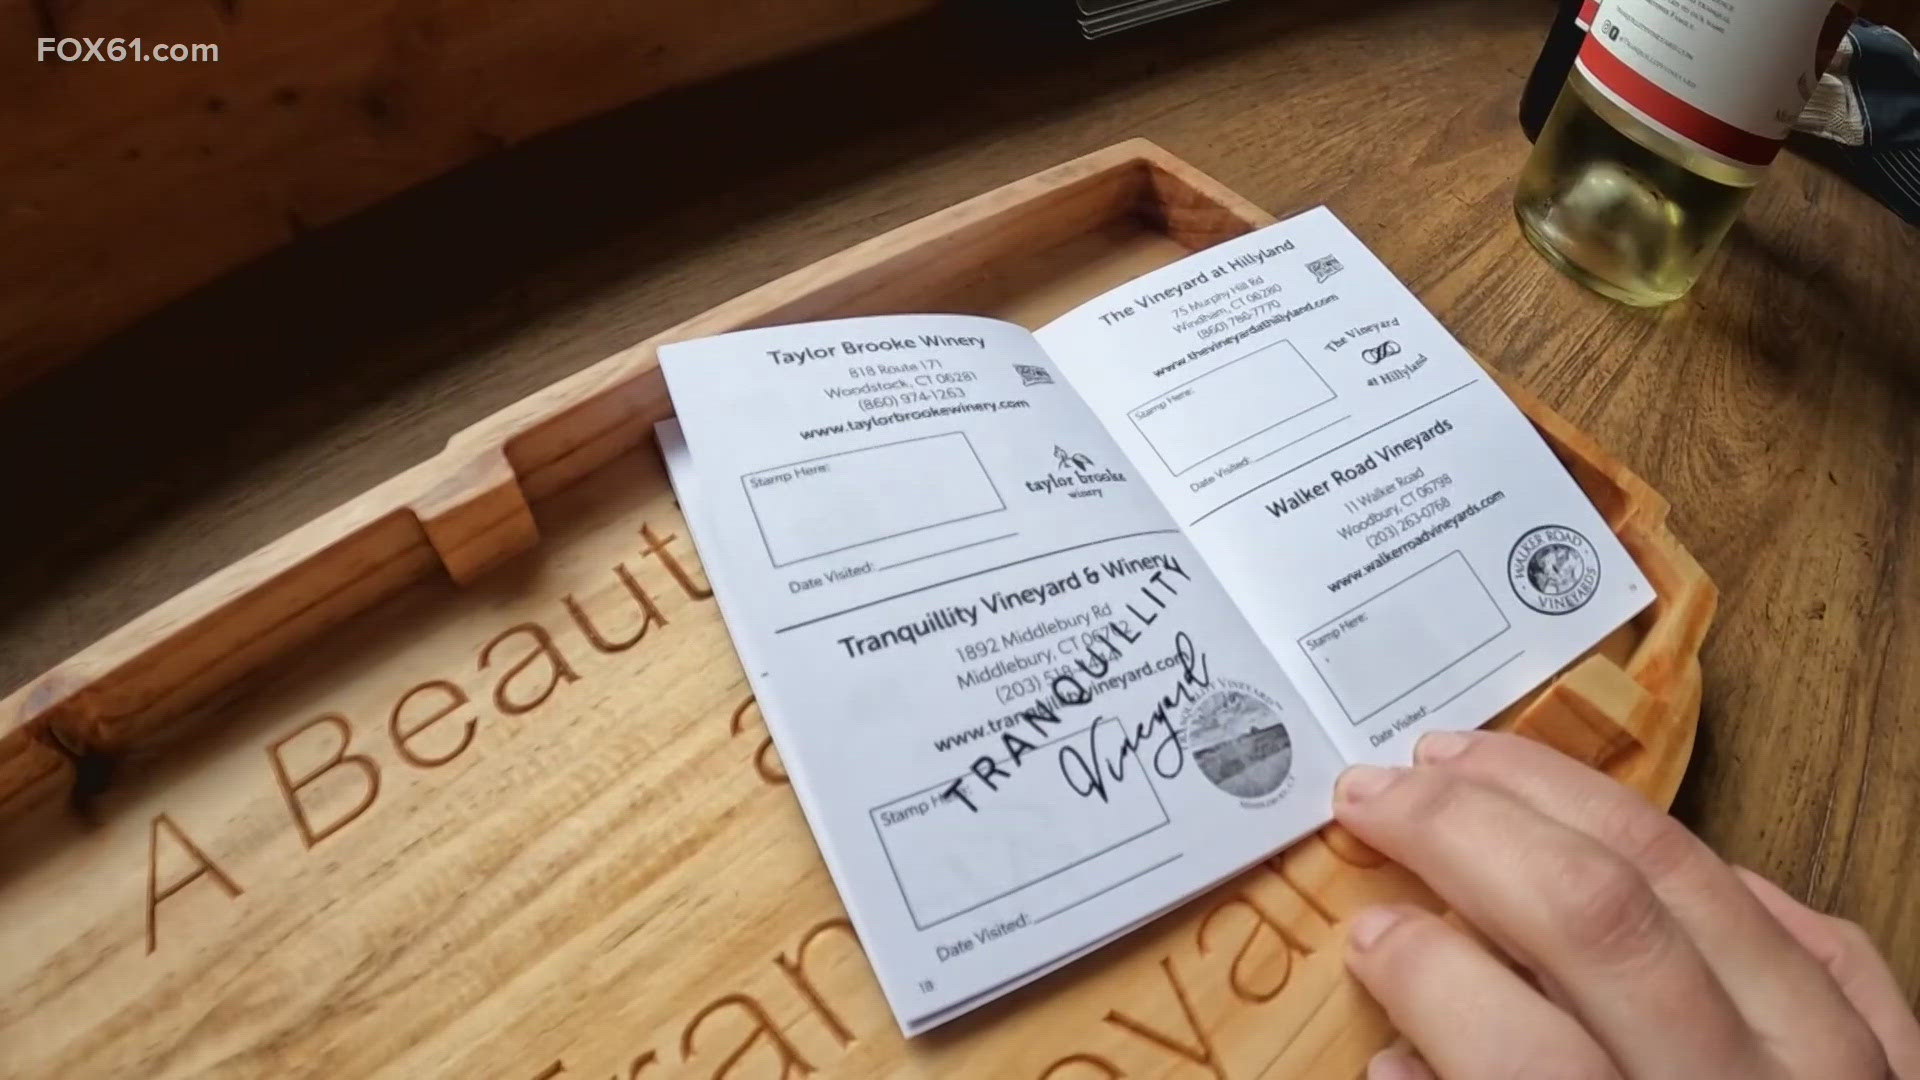 FOX61.com
Taylor Brooke Winery
818 Route 171
Woodstock, CT 06281
(860) 974-1263
www.taylorbrookewinery.com
Stamp Here:
taylor brooke
winery
Date Visited:
Tranquillity Vineyard & Winery
1892 Middlebury Rd
Middlebury, CT
(203)
www.tranquillityvineyard.com
TRANQUILLITY
Vineyard
Stamp Here:
Date Visited:
18
The Vineyard at Hillyland
75 Murphy Hill Rd
Windham, CT 06280
(860) 786-7770
www.thevineyardathillyland.com
Stamp Here:
The Vineyard
at Hillyland
Date Visited:
Walker Road Vineyards
11 Walker Road
Woodbury, CT 06798
(203) 263-0768
www.walkerroadvineyards.com
Stamp Here:
WALKER ROAD
VINEYARDS
Date Visited:
19
A Beaut